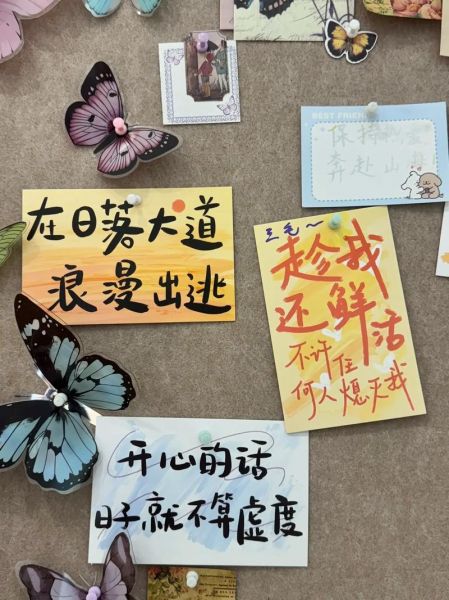 BEST FRIEND
保持
奔赴山
在日落大道
浪漫出逃
三毛~
趁我
还鲜活
不许任
何人熄灭我
开心的话
日子就不算虚度